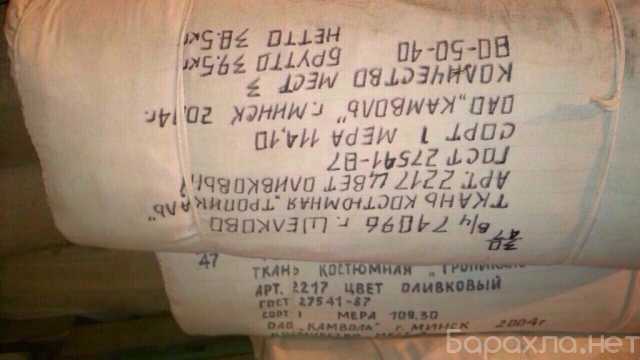 30/47 в/ч 74096 г. ЩЕЛКОВО
ТКАНЬ КОСТЮМНАЯ „ТРОПИКАЛЬ"
АРТ. 2217 ЦВЕТ ОЛИВКОВЫЙ
ГОСТ 27541-87
СОРТ 1 МЕРА 114,10
ОАО „КАМВОЛЬ" г. МИНСК
КОЛИЧЕСТВО МЕСТ 3
80-50-40 БРУТТО 39,5кг
НЕТТО 38.5кг
47
ТКАНЬ КОСТЮМНАЯ „ТРОПИКАЛЬ
АРТ. 2217 ЦВЕТ ОЛИВКОВЫЙ
ГОСТ 27541-87
СОРТ 1 МЕРА 109,30
ОАО „КАМВОЛЬ" г. МИНСК 2004г
Барахла.нет